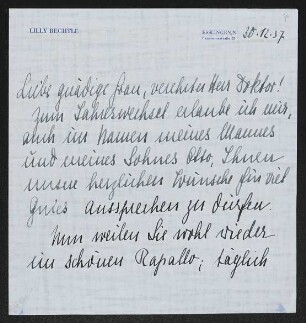 LILLY BECHTLE
ESSLINGEN/N
30.12.57
Liebe gnädige Frau, verehrter Herr Doktor!
Zum Jahreswechsel erlaube ich mir,
auch im Namen meines Mannes
und meines Sohnes Otto, Ihnen
unsere herzlichen Wünsche für viel
Gutes aussprechen zu dürfen.
Nun weilen Sie wohl wieder
im schönen Rapallo; täglich